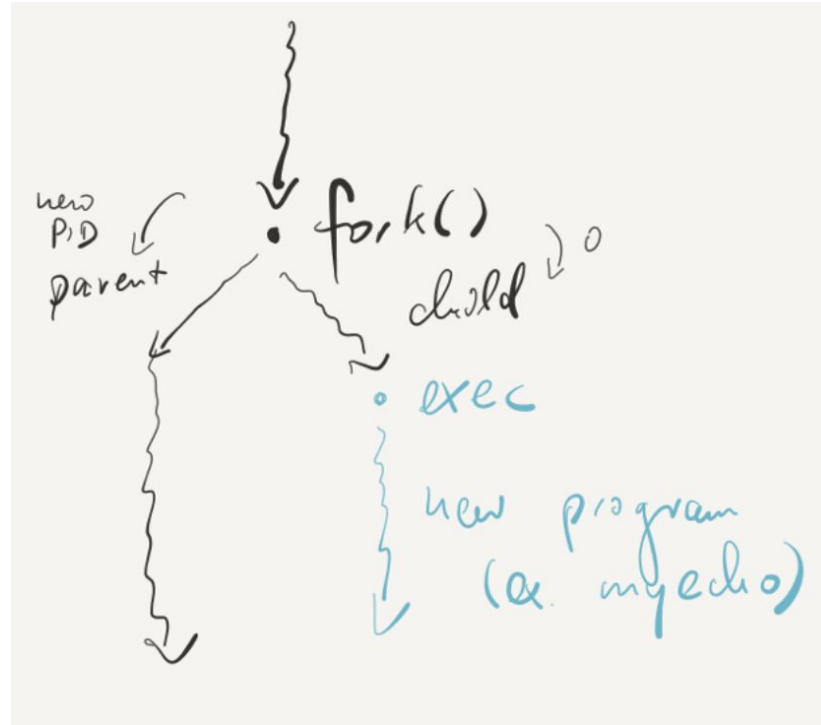 new
PID
parent
fork()
child
0
exec
new program
(ex. myecho)